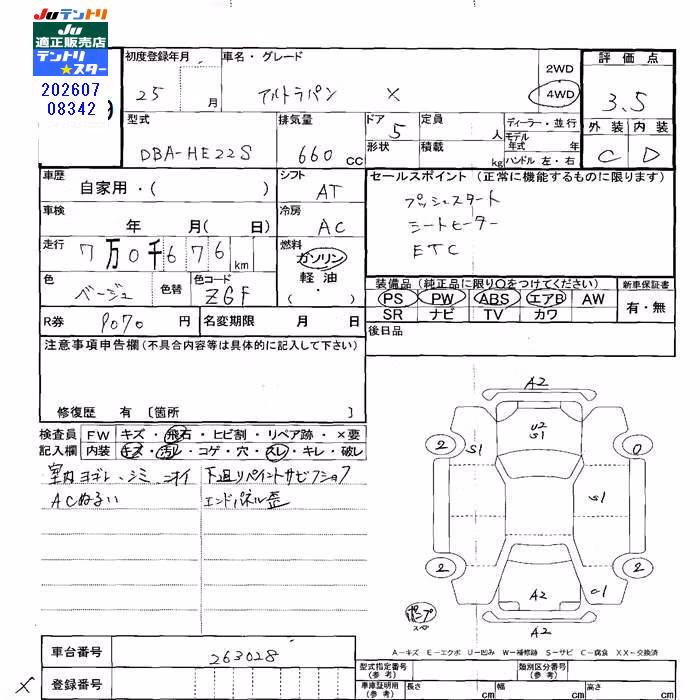 JUテントリ
JU
適正販売店
テントリ
★スター
202607
08342
初度登録年月 25 月
車名・グレード アルトラパン X
2WD
4WD
評価点 3.5
外装 内装
C D
型式 DBA-HE22S
排気量 660 cc
ドア 5
形状
定員 人
積載 kg
ディーラー・並行
モデル
年式 年
ハンドル 左・右
車歴 自家用・( )
シフト AT
車検 年 月( 日)
冷房 AC
走行 7万0千676 km
燃料 ガソリン
軽油
・( )
色 ベージュ
色替
色コード ZGF
R券 9070 円
名変期限 月 日
セールスポイント (正常に機能するものに限ります)
プッシュスタート
シートヒーター
ETC
装備品 (純正品に限り○をつけてください)
新車保証書
PS PW ABS エアB AW
SR ナビ TV カワ
有・無
後日品
注意事項申告欄(不具合内容等は具体的に記入して下さい)
修復歴 有 〔箇所 〕
検査員 FW キズ・飛石・ヒビ割・リペア跡・×要
記入欄 内装 キズ・汚レ・コゲ・穴・スレ・キレ・破レ
室内ヨゴレ・シミ ニオイ
ACぬるい
下廻りペイントサビフショク
エンドパネル歪
A2
U2
S1
2
S1
0
S1
2
2
C1
A2
A2
ポンプ
スペ
A-キズ E-エクボ U-凹み W-補修跡 S-サビ C-腐食 XX-交換済
車台番号 263028
登録番号
X
型式指定番号
(参考)
類別区分番号
(参考)
車庫証明用
(参考)
長さ cm
幅 cm
高さ cm